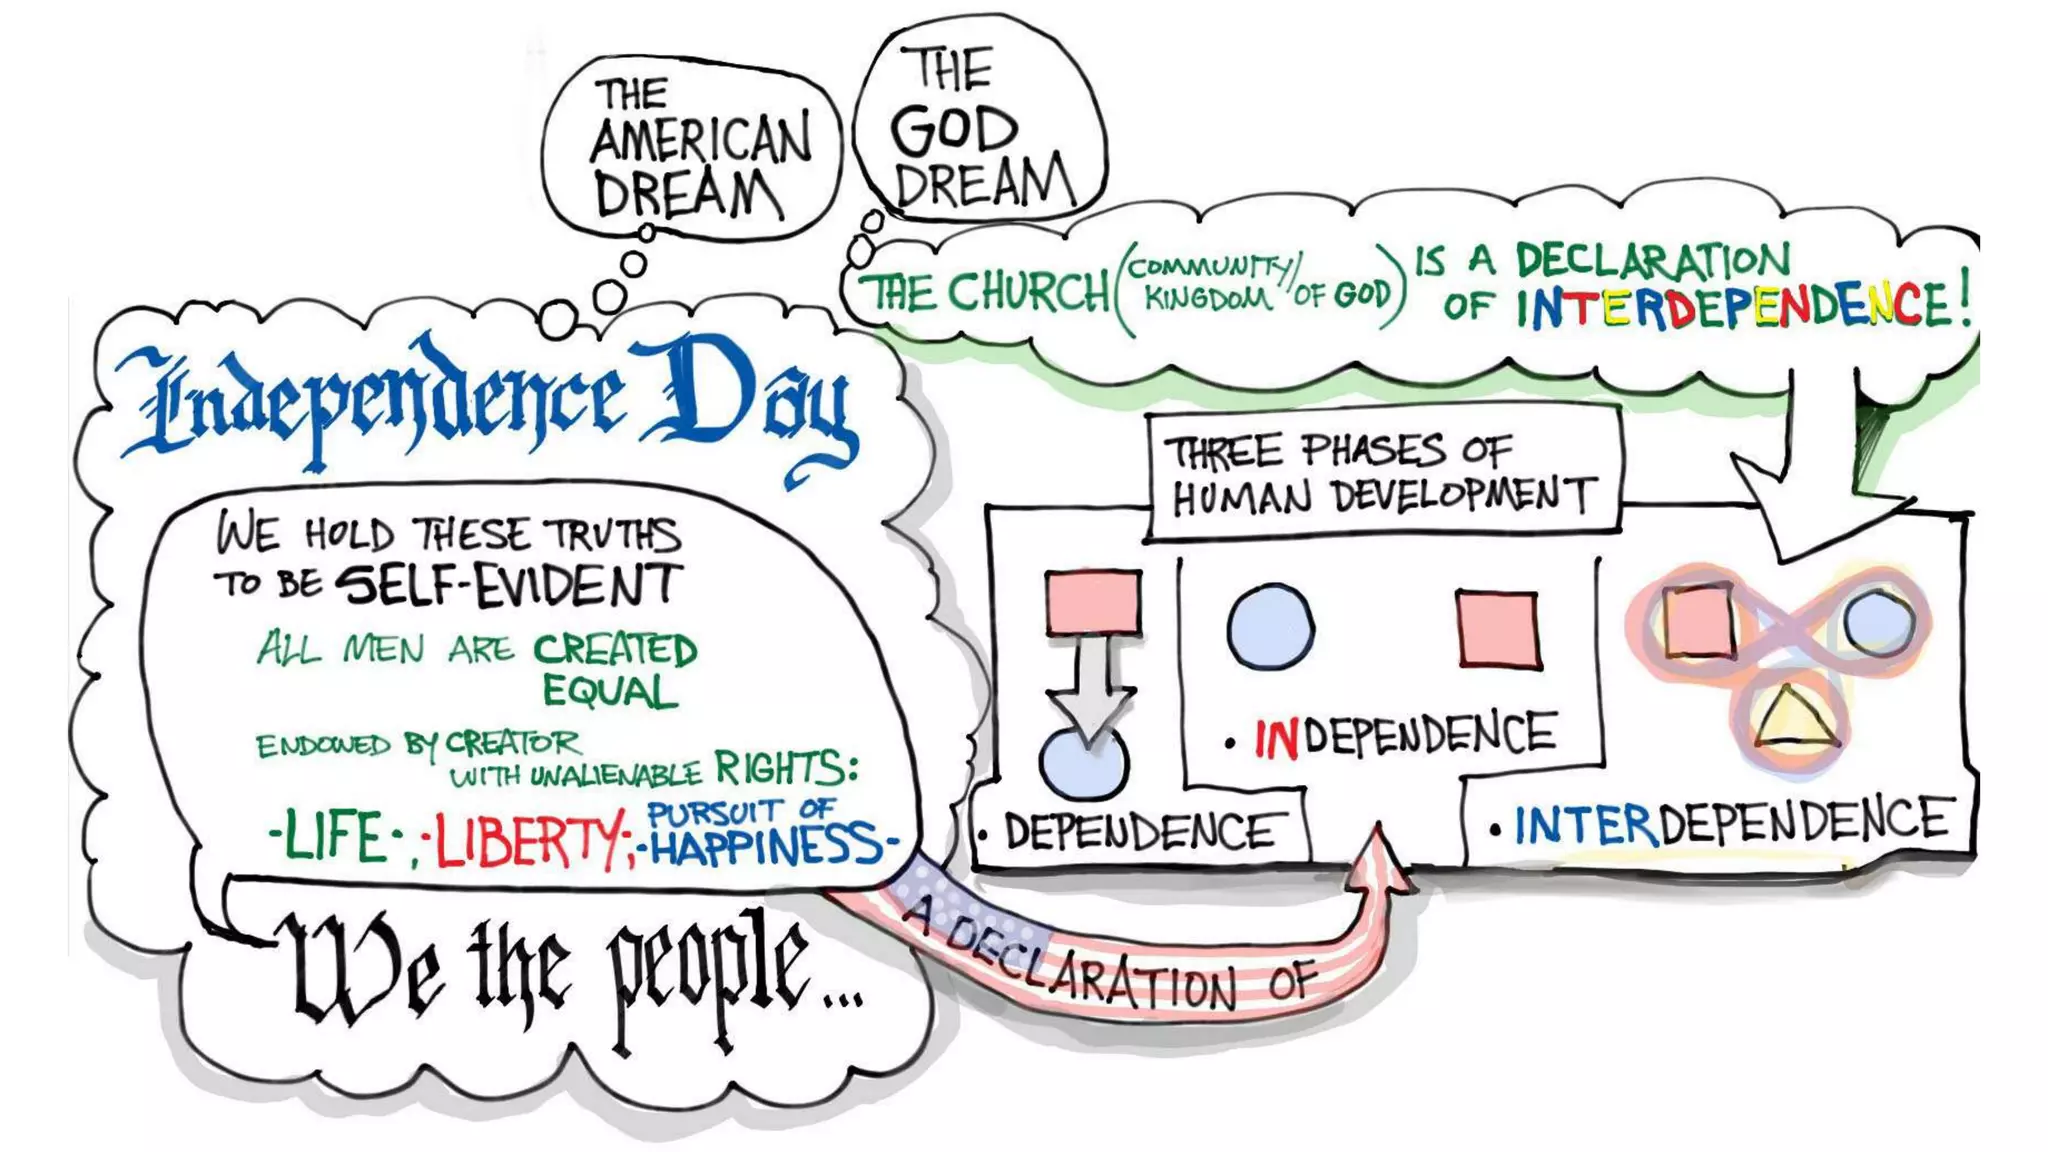 THE
AMERICAN
DREAM
THE
GOD
DREAM
THE CHURCH (COMMUNITY/
KINGDOM OF GOD) IS A DECLARATION
OF INTERDEPENDENCE!
Independence Day
WE HOLD THESE TRUTHS
TO BE SELF-EVIDENT
ALL MEN ARE CREATED
EQUAL
ENDOWED BY CREATOR
WITH UNALIENABLE RIGHTS:
-LIFE-, -LIBERTY-, -PURSUIT OF
HAPPINESS-
We the people...
A DECLARATION OF
THREE PHASES OF
HUMAN DEVELOPMENT
• DEPENDENCE
• INDEPENDENCE
• INTERDEPENDENCE